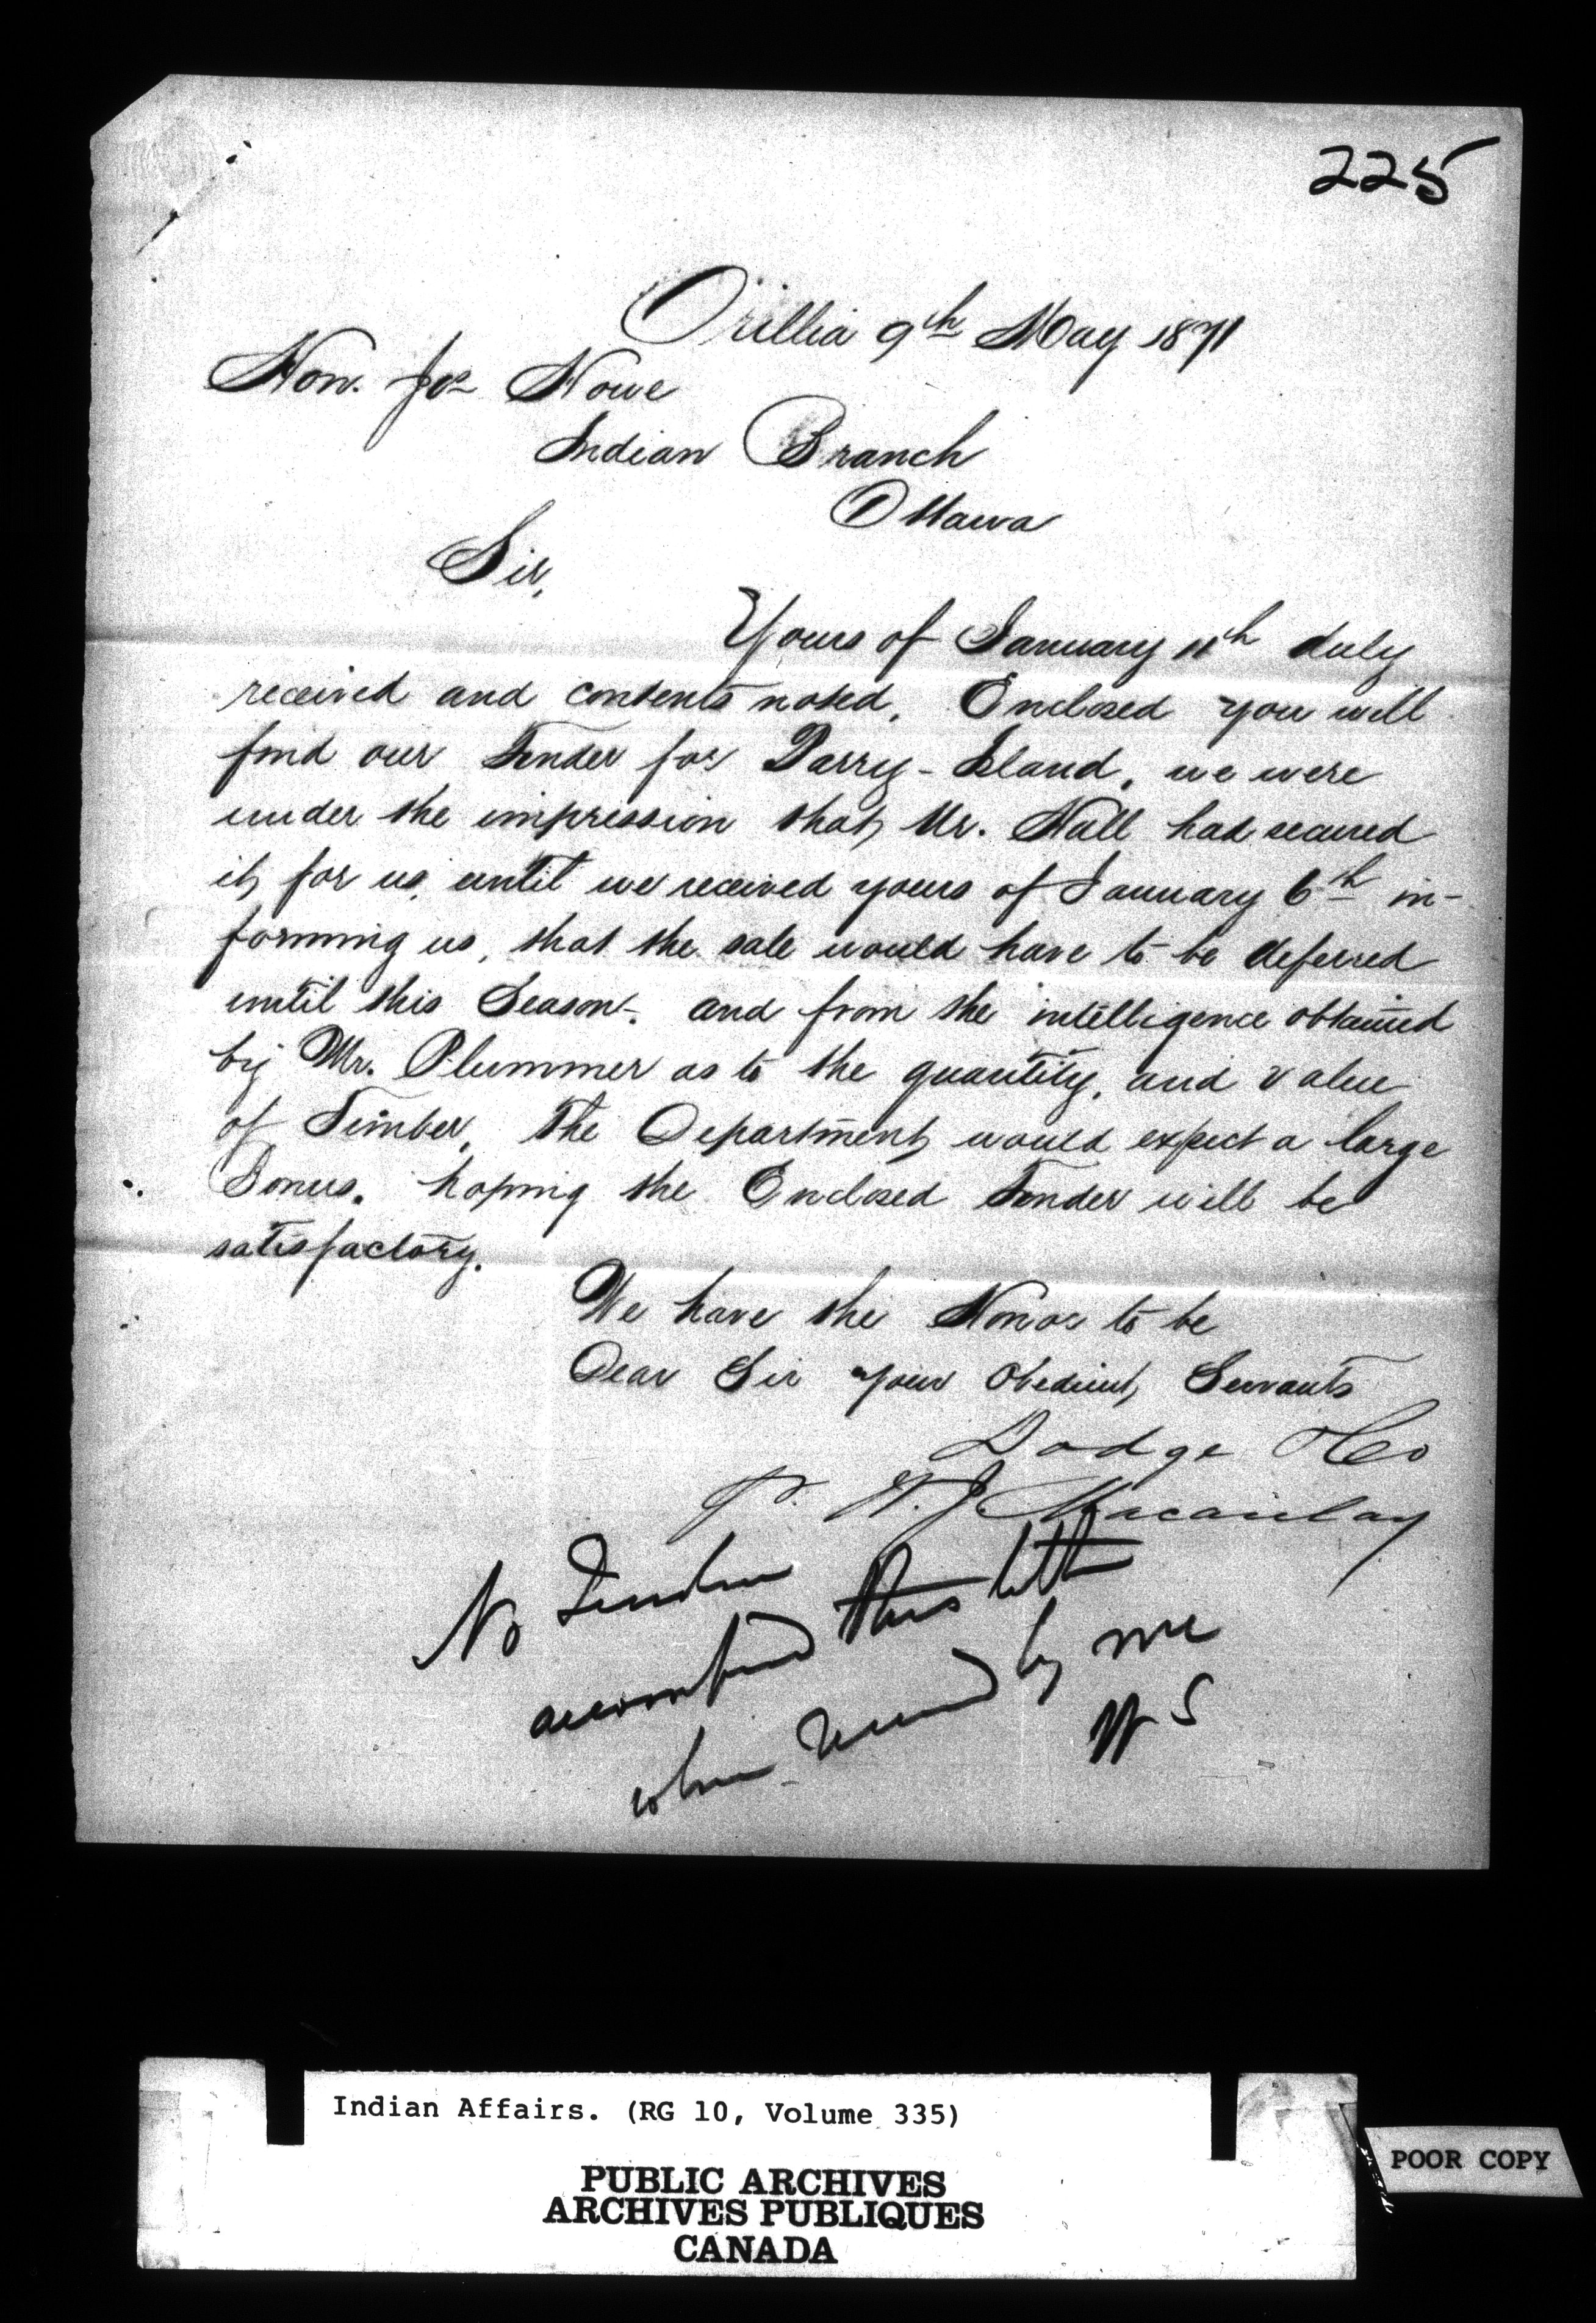 225
Orillia 9th May 1871
Hon. Jos Howe
Indian Branch
Ottawa
Sir,
Yours of January 11th duly
received and contents noted. Enclosed you will
find our Tender for Parry-Island, we were
under the impression that Mr. Hall had secured
it for us, until we received yours of January 6th in-
forming us, that the sale would have to be deferred
until this Season. and from the intelligence obtained
by Mr. Plummer as to the quantity, and value
of Timber, The Department would expect a large
Bonus. hoping the Enclosed Tender will be
satisfactory.
We have the Honor to be
Dear Sir your Obedient Servants
Dodge & Co
P. H. J. Macaulay
No Tender
accompanied this letter
when received by me
WS
Indian Affairs. (RG 10, Volume 335)
PUBLIC ARCHIVES
ARCHIVES PUBLIQUES
CANADA
POOR COPY